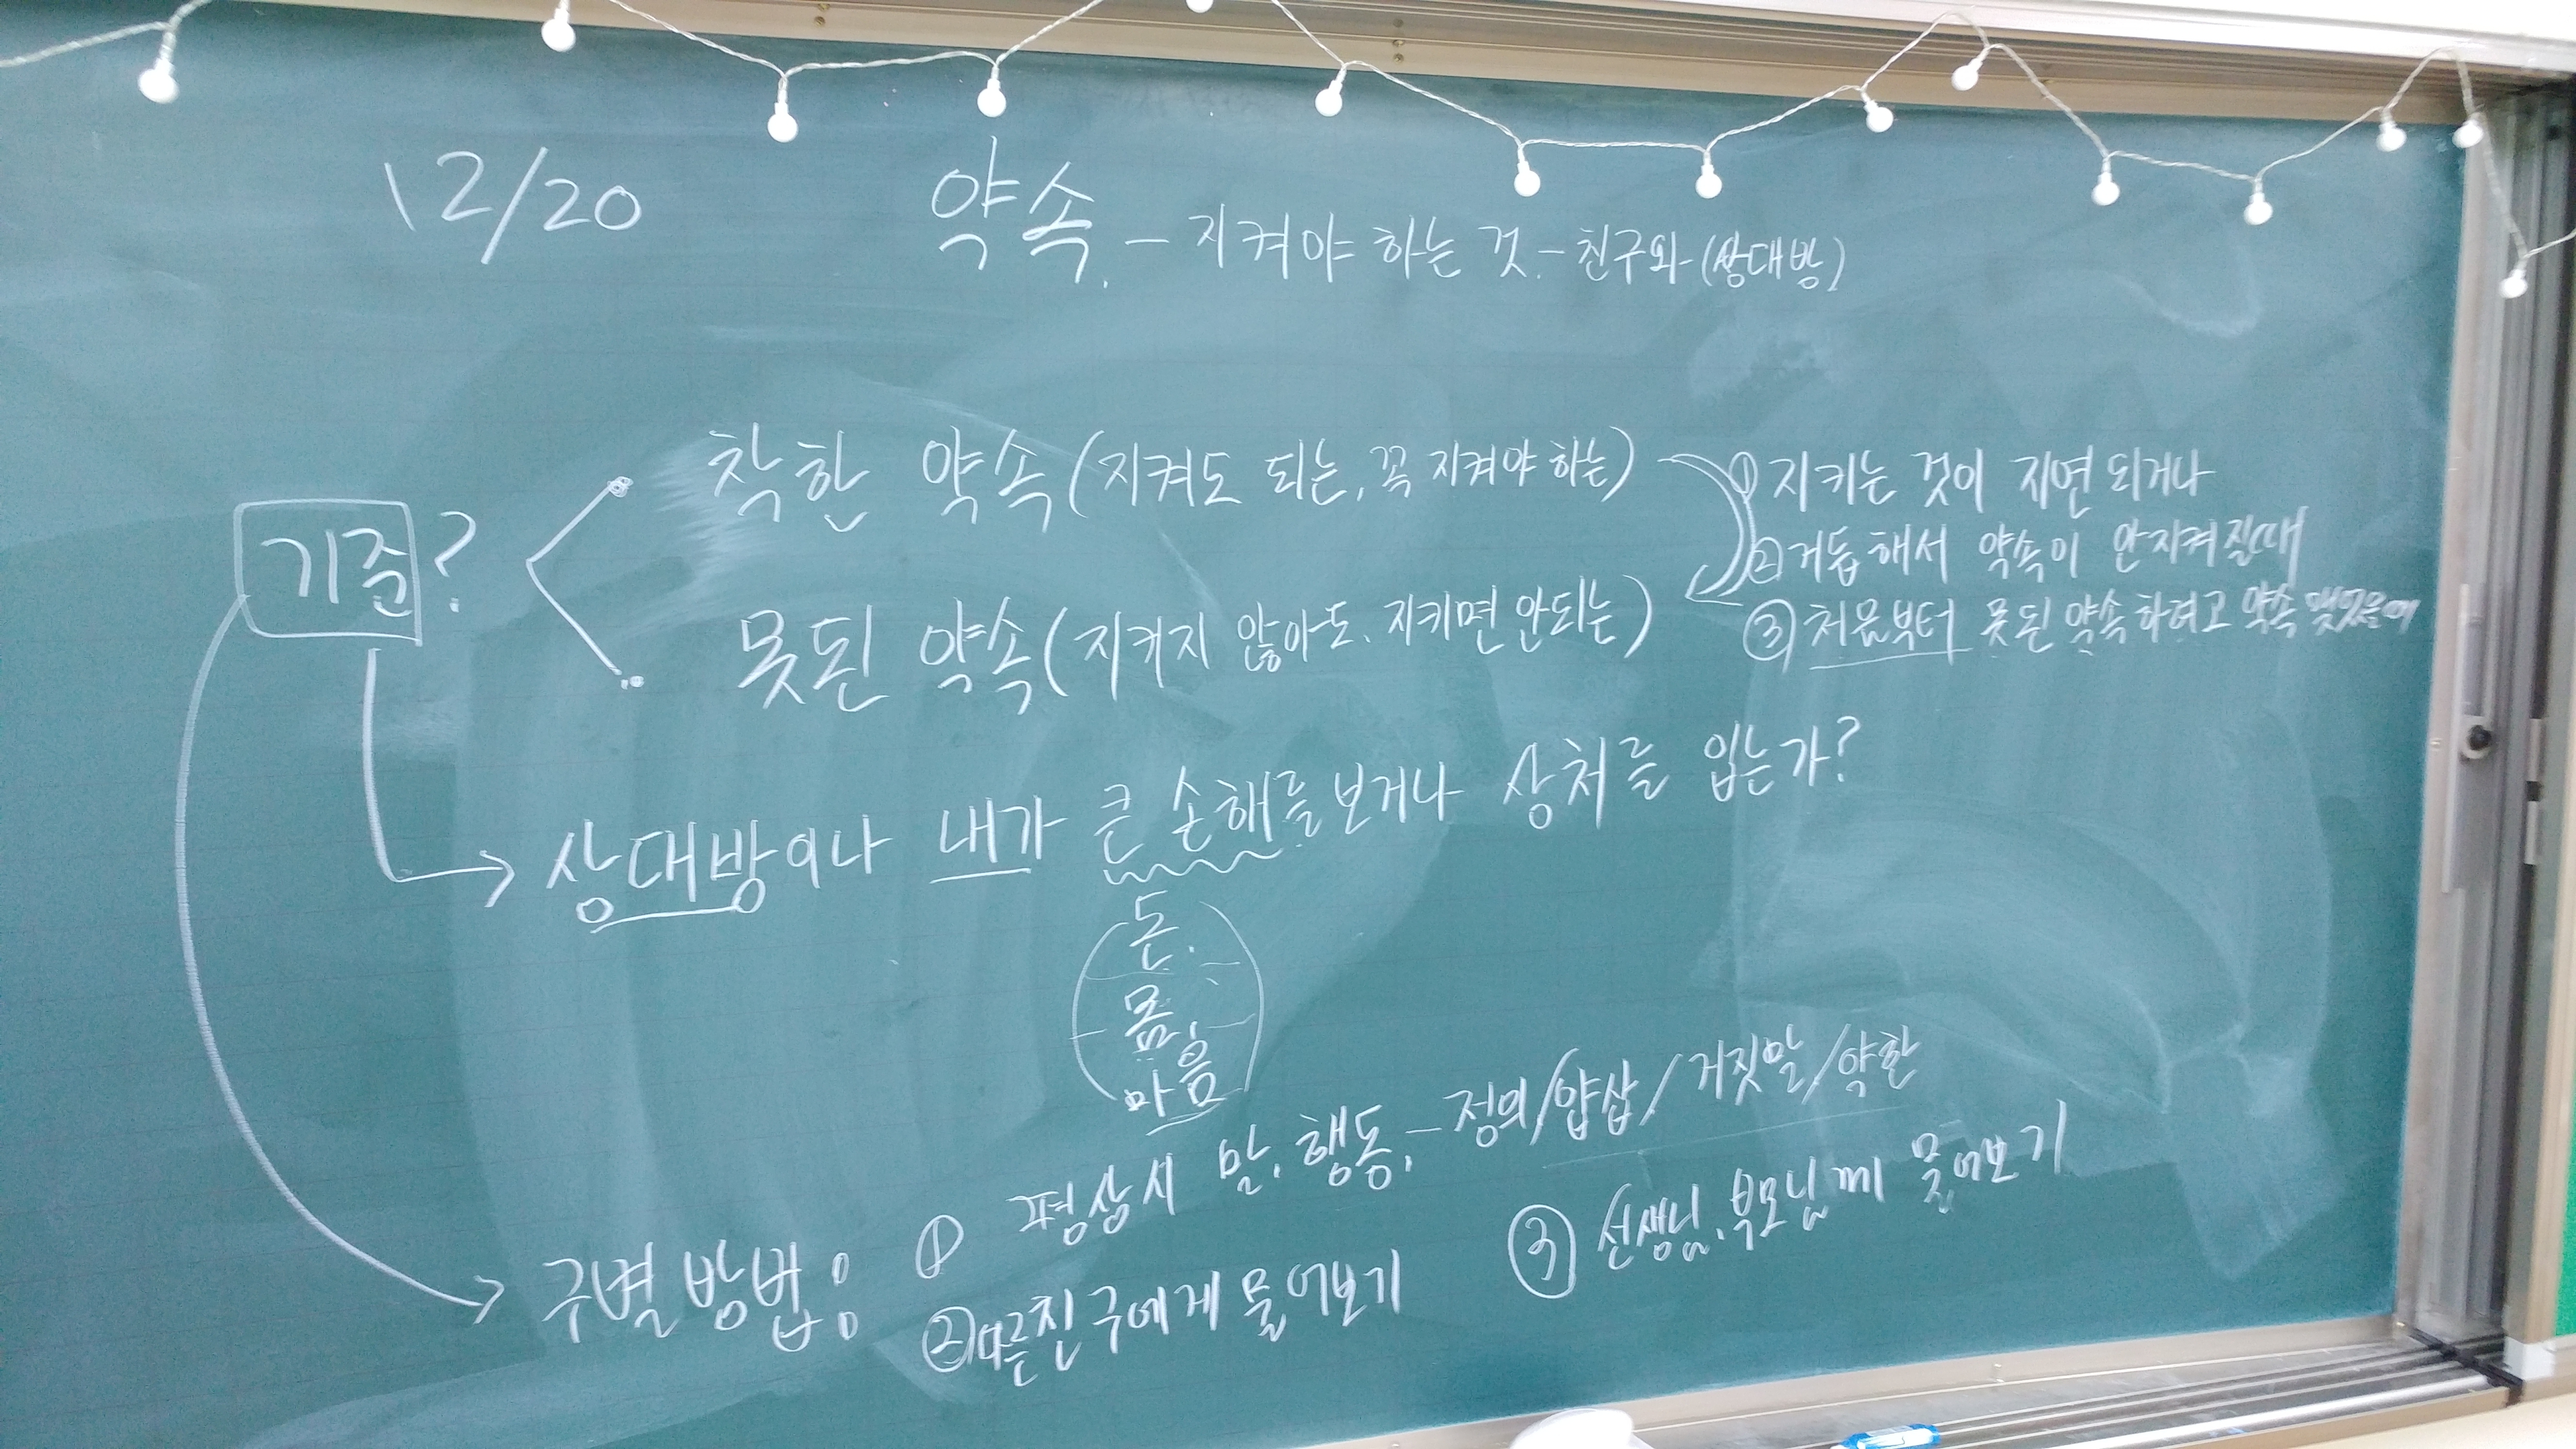 12/20
약속. - 지켜야 하는 것. - 친구와 (상대방)
기준?
착한 약속 (지켜도 되는, 꼭 지켜야 하는)
못된 약속 (지키지 않아도, 지키면 안되는)
① 지키는 것이 지연 되거나
② 거듭해서 약속이 안지켜질때
③ 처음부터 못된 약속하려고 약속
상대방이나 내가 큰 손해를 보거나 상처를 입는가?
돈.
몸,
마음
구별 방법:
① 평상시 말, 행동, - 정의/얍삽/거짓말/약한
② 다른친구에게 물어보기
③ 선생님, 부모님께 물어보기